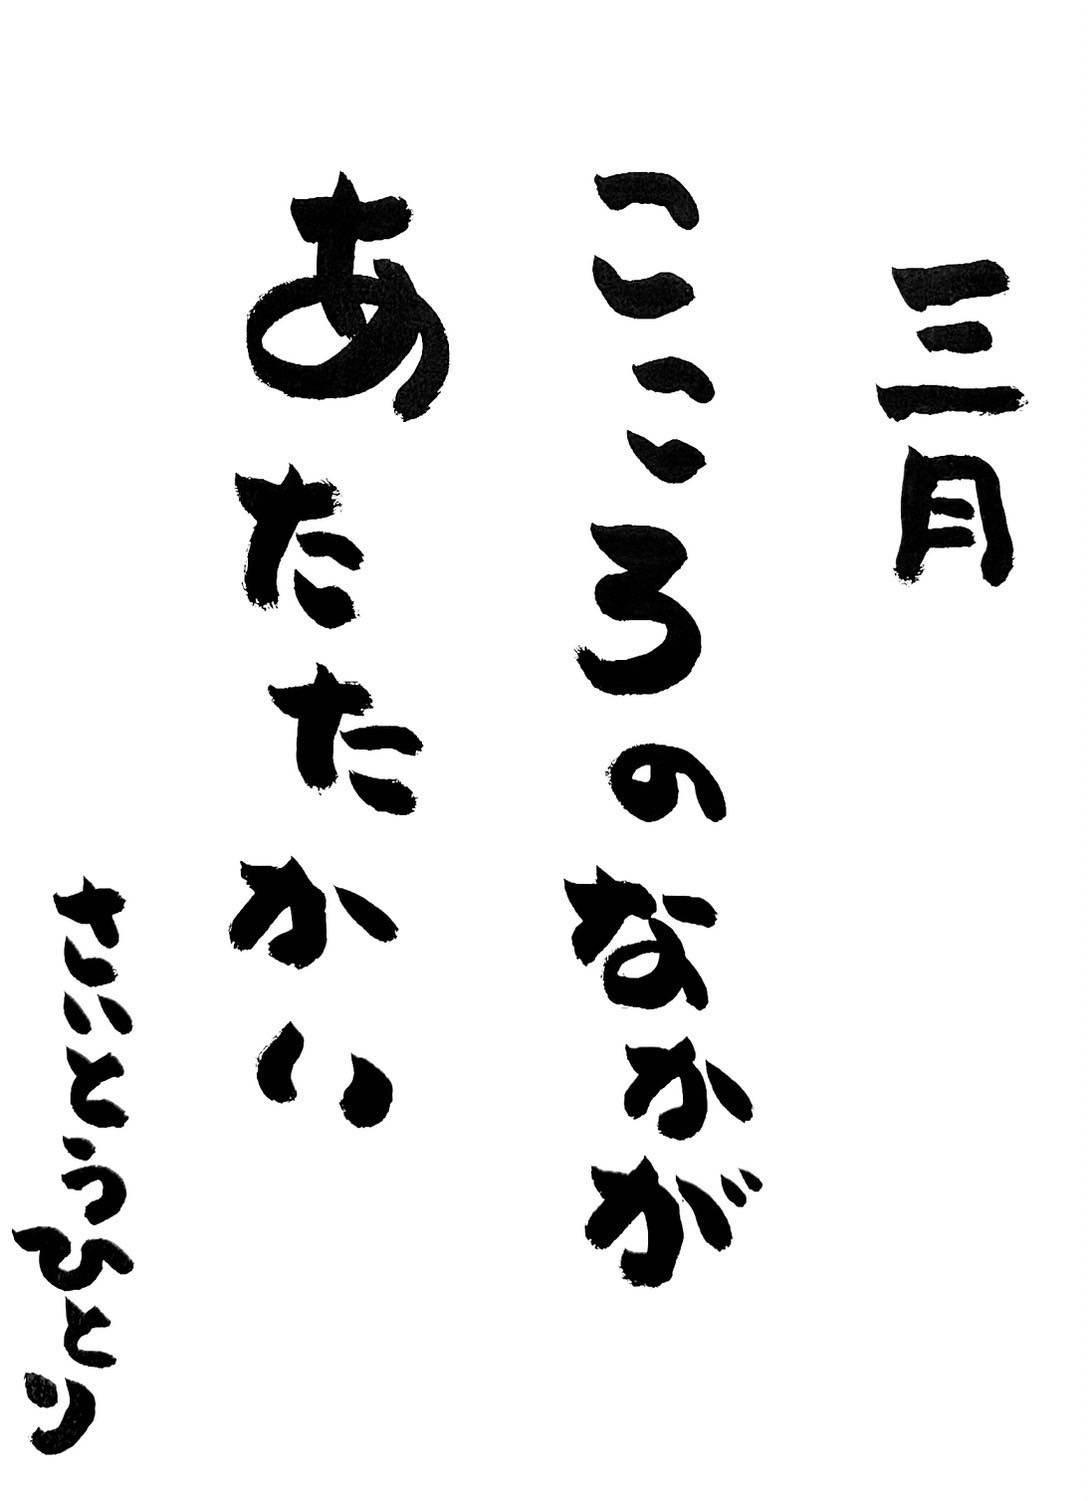 三月
こころのなかが
あたたかい
さいとうひとり